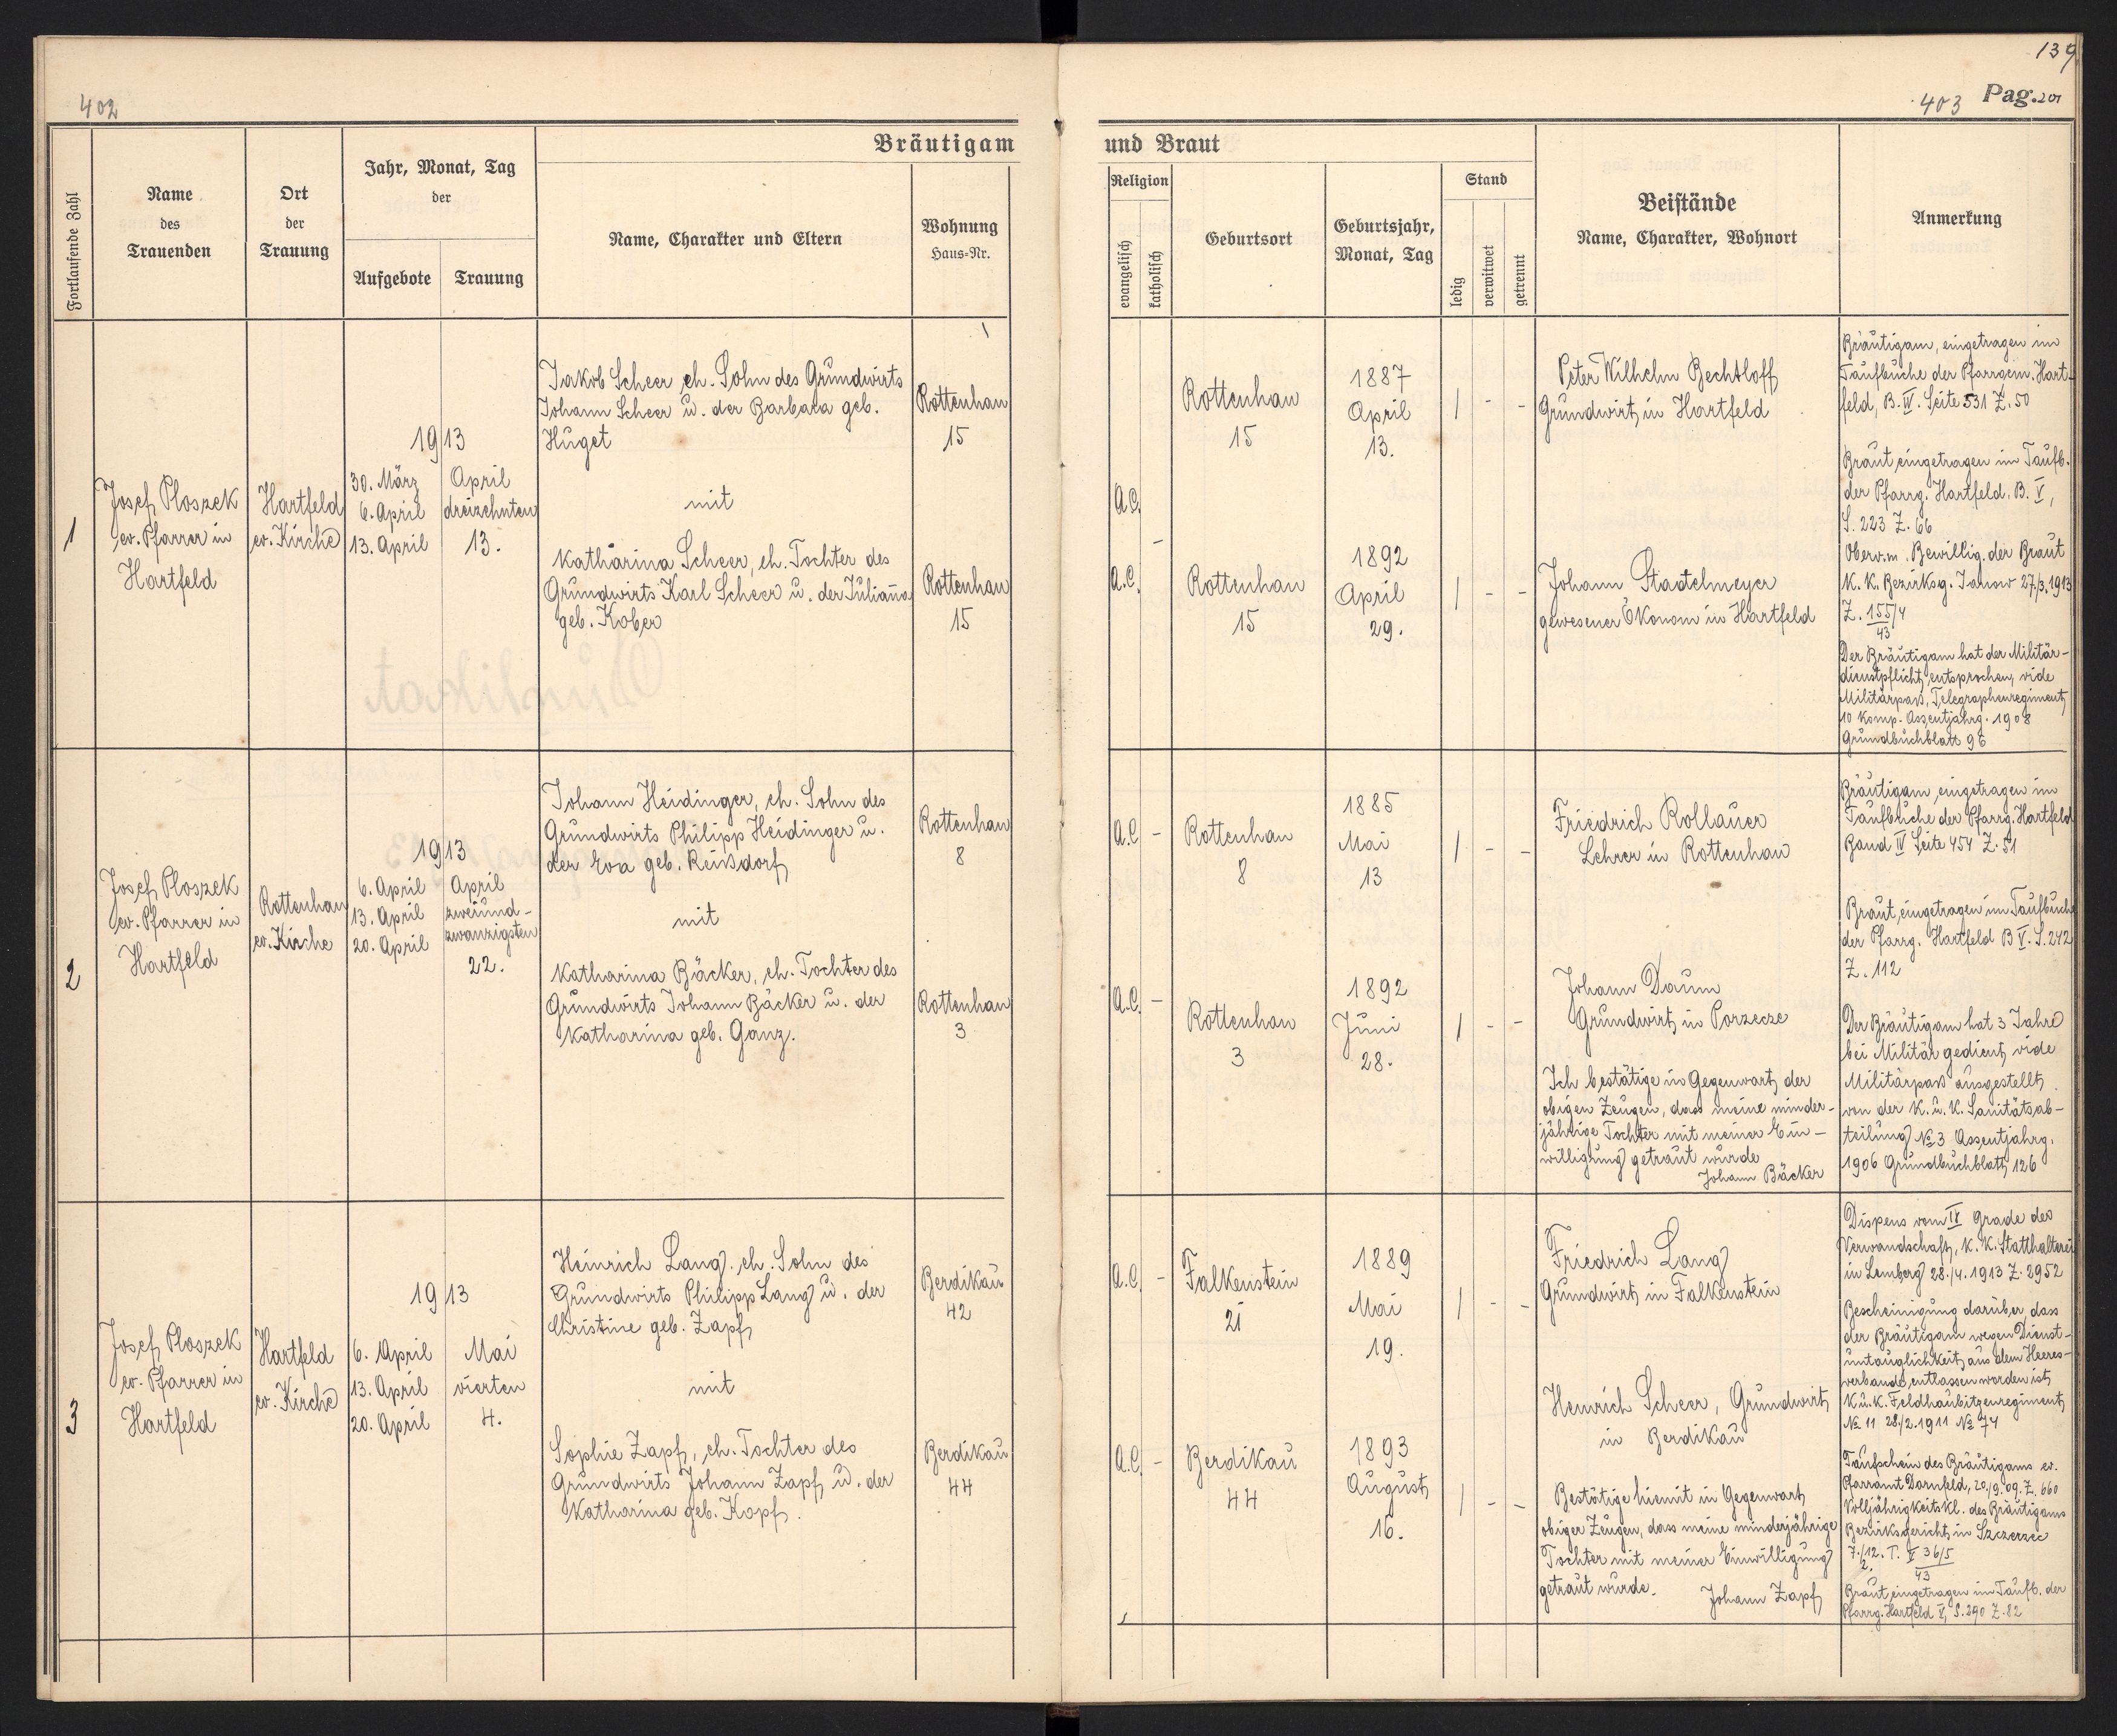 402
139
403 Pag. 201
Bräutigam und Braut
Fortlaufende Zahl
Name
des
Trauenden
Ort
der
Trauung
Jahr, Monat, Tag
der
Aufgebote
Trauung
Name, Charakter und Eltern
Wohnung
Haus-Nr.
Religion
evangelisch
katholisch
Geburtsort
Geburtsjahr,
Monat, Tag
Stand
ledig
verwitwet
getrennt
Beistände
Name, Charakter, Wohnort
Anmerkung
1
Josef Ploszek
ev. Pfarrer in
Hartfeld
Hartfeld
ev. Kirche
1913
30. März
6. April
13. April
April
dreizehnten
13.
Jakob Scheer eh. Sohn des Grundwirts
Johann Scheer u. der Barbara geb.
Huget
mit
Katharina Scheer, eh. Tochter des
Grundwirts Karl Scheer u. der Juliana
geb. Kober
Rottenhan
15
Rottenhan
15
A.C.
-
A.C.
Rottenhan
15
Rottenhan
15
1887
April
13.
1892
April
29.
/ - -
/ - -
Peter Wilhelm Bechtloff
Grundwirt in Hartfeld
Johann Staatelmeyer
gewesener Ökonom in Hartfeld
Bräutigam, eingetragen im
Taufbuche der Pfarrgem. Hart-
feld, B. IV. Seite 531 Z. 50
Braut eingetragen im Taufb.
der Pfarrg. Hartfeld, B. V,
S. 223 Z. 66
Oberv.m. Bewillig. der Braut
K. K. Bezirksg. Janow 27./3.1913
Z. 155/4
43
Der Bräutigam hat der Militär-
dienstpflicht entsprochen, vide
Militärpass, Telegraphenregiment
10 Komp. Assentjahrg. 1908
Grundbuchblatt 96
2
Josef Ploszek
ev. Pfarrer in
Hartfeld
Rottenhan
ev. Kirche
1913
6. April
13. April
20. April
April
zweiund-
zwanzigsten
22.
Johann Heidinger, eh. Sohn des
Grundwirts Philipp Heidinger u.
der Eva geb. Reissdorf
mit
Katharina Bäcker, eh. Tochter des
Grundwirts Johann Bäcker u. der
Katharina geb. Ganz.
Rottenhan
8
Rottenhan
3
A.C. -
A.C. -
Rottenhan
8
Rottenhan
3
1885
Mai
13
1892
Juni
28.
/ - -
/ - -
Friedrich Rollauer
Lehrer in Rottenhan
Johann Daum
Grundwirt in Porzecze
Ich bestätige in Gegenwart der
obigen Zeugen, dass meine minder-
jährige Tochter mit meiner Ein-
willigung getraut wurde
Johann Bäcker
Bräutigam eingetragen im
Taufbuche der Pfarrg. Hartfeld
Band IV Seite 454 Z. 51
Braut, eingetragen im Taufbuche
der Pfarrg. Hartfeld B V. S. 242
Z. 112
Der Bräutigam hat 3 Jahre
bei Militär gedient, vide
Militärpass ausgestellt
von der K. u. K. Sanitätsab-
teilung № 3 Assentjahrg.
1906 Grundbuchblatt 126
3
Josef Ploszek
ev. Pfarrer in
Hartfeld
Hartfeld
ev. Kirche
1913
6. April
13. April
20. April
Mai
vierten
4.
Heinrich Lang, eh. Sohn des
Grundwirts Philipp Lang u. der
Christine geb. Zapf
mit
Sophie Zapf, eh. Tochter des
Grundwirts Johann Zapf u. der
Katharina geb. Kopf.
Berdikau
42
Berdikau
44
A.C. -
A.C. -
Falkenstein
21
Berdikau
44
1889
Mai
19.
1893
August
16.
/ - -
/ - -
Friedrich Lang
Grundwirt in Falkenstein
Heinrich Scheer, Grundwirt
in Berdikau
Bestätige hiemit in Gegenwart
obiger Zeugen, dass meine minderjährige
Tochter mit meiner Einwilligung
getraut wurde.
Johann Zapf
Dispens vom IV Grade des
Verwandschaft, K. K. Statthalterei
in Lemberg 28./4.1913 Z. 2952
Bescheinigung darüber, dass
der Bräutigam wegen Dienst-
untauglichkeit aus dem Heeres-
verbande entlassen worden ist,
K. u. K. Feldhaubitzenregiment
№ 11 28./2.1911 № 74
Taufschein des Bräutigams ev.
Pfarramt Dornfeld, 20./9.09. Z. 660
Volljährigkeitskl. des Bräutigams
Bezirksgericht in Szczerzec
7./12. T. V 36/5
2. 43
Braut, eingetragen im Taufb. der
Pfarrg. Hartfeld V, S. 290 Z. 82